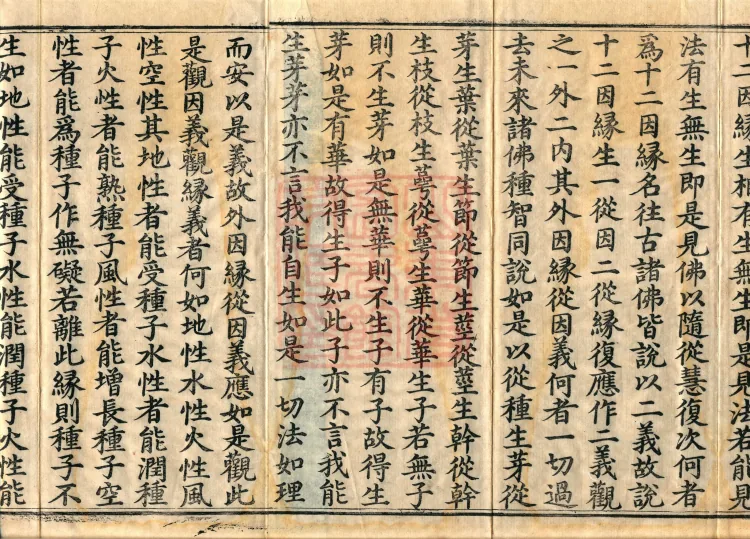 十二因縁生相不生無生即是見法若能見
法有生無生即是見佛以隨從慧復次何者
爲十二因縁名往古諸佛皆說以二義故說
十二因縁生一從因二從縁復應作二義觀
之一外二内其外因縁從因義何者一切過
去未來諸佛種智同說如是以從種生芽從
芽生葉從葉生節從節生莖從莖生幹從幹
生枝從枝生萼從萼生華從華生子若無子
則不生芽如是無華則不生子有子故得生
芽如是有華故得生子如此子亦不言我能
生芽芽亦不言我能自生如是一切法如理
而安以是義故外因縁從因義應如是觀此
是觀因義觀縁義者何如地性水性火性風
性空性其地性者能受種子水性者能潤種
子火性者能熟種子風性者能增長種子空
性者能爲種子作無礙若離此縁則種子不
生如地性能受種子水性能潤種子火性能